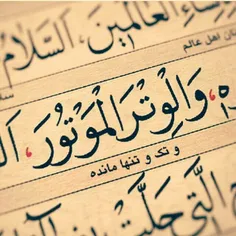 نساء العالمین، السلام
نان اهل عالم
ه، وَالْوِتْرَ الْمَوْتُورَ، ا
و تک و تنها مانده
الَّتی حَلَّتْ